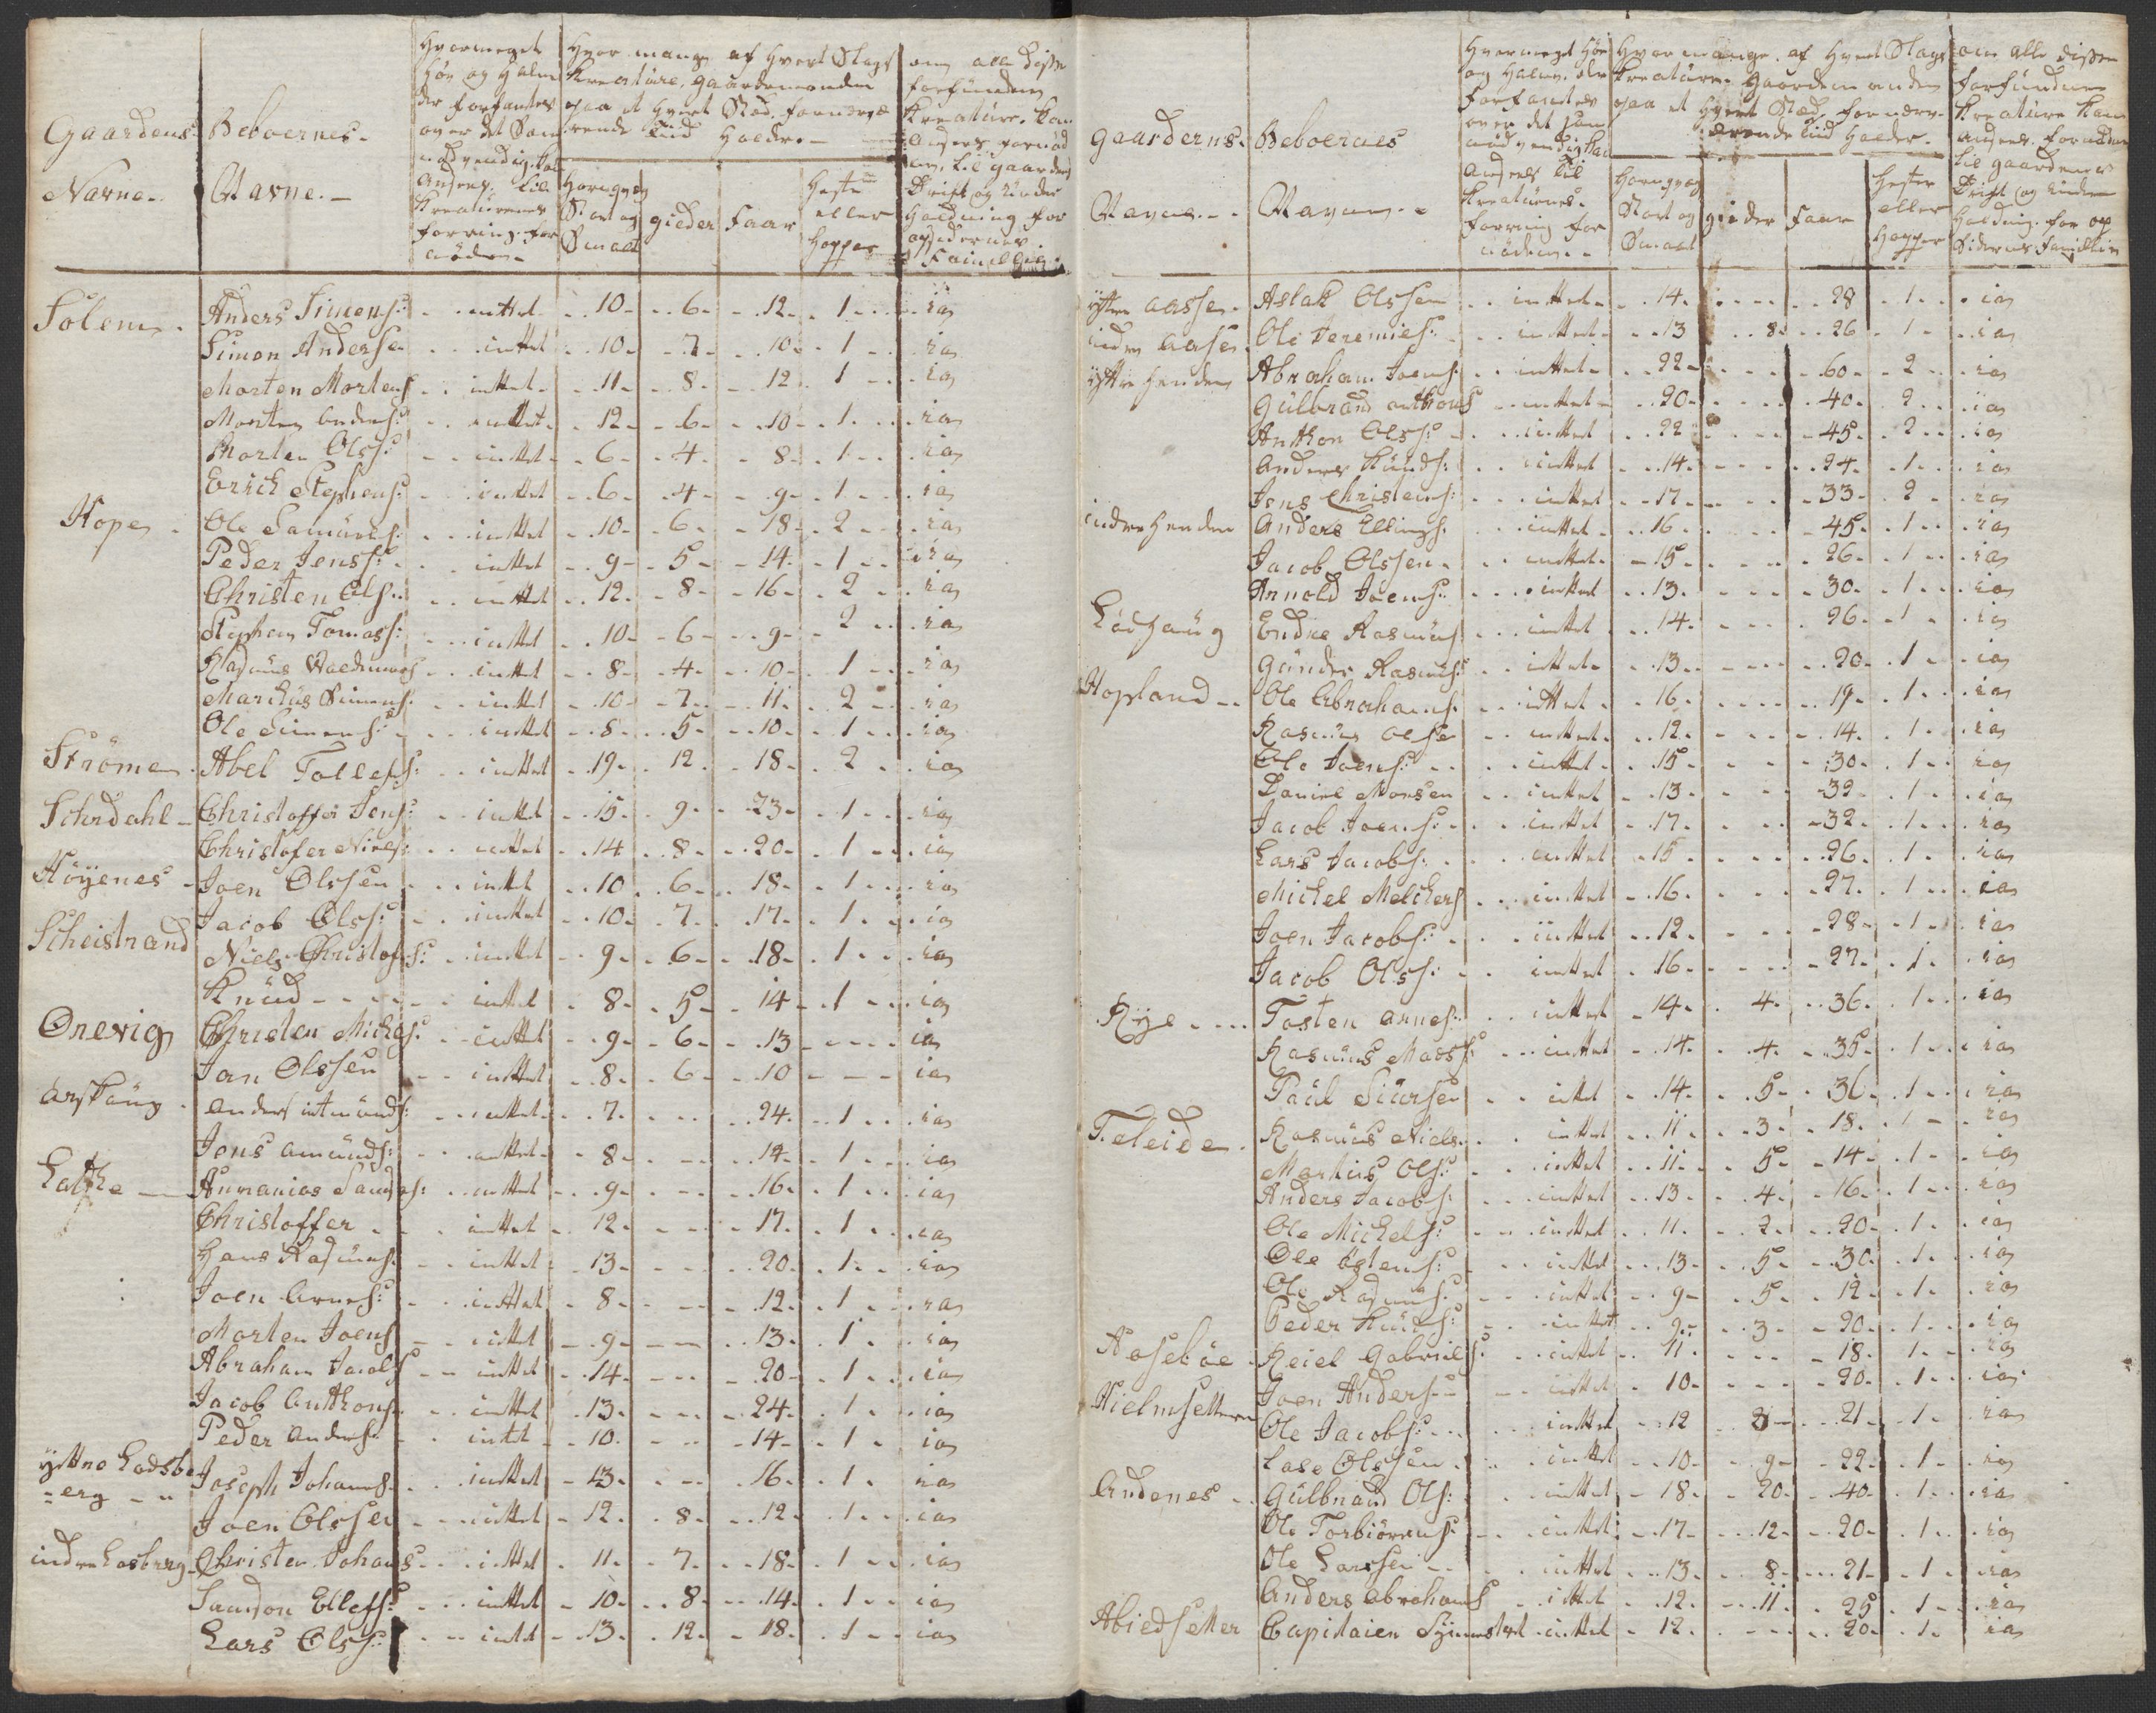 Gaardens
Navne.
Beboernes
Navne.
Hvormeget
Høe og Halm
der forfantes
over det Som
nødvendig kan
Ansees til
Kreaturenes
forring for
nøden.
Hvor mange af hvert Slags
Kreature, gaardemanden
paa et hvert Sted fornærvæ
rende tiid holder.
Hornqvæg
Stort og
Smaat
gieder
Faar
Heste
eller
Hopper
om alle disse
forfundne
Kreature kan
Ansees fornød
en til gaardens
Drift og Under
Holdning for
opsidernes
Familien.
Solem. Anders Simens: intet 10 6 12 1 ia
Simon Andersen intet 10 7 10 1 ia
Morten Mortens intet 11 8 12 1 ia
Morten Anders: intet 12 6 10 1 ia
Morten Ols: intet 6 4 8 1 ia
Erick Stephens: intet 6 4 9 1 ia
Hope Ole Samuels: intet 10 6 18 2 ia
Peder Jenss: intet 9 5 14 1 ia
Christen Ols: intet 12 8 16 2 ia
Stephen Tomass: intet 10 6 9 2 ia
Rasmus intet 8 4 10 1 ia
Marckus Simens: intet 10 7 11 2 ia
Ole Simens: intet 8 5 10 1 ia
Strömen Abel Tollefs: intet 19 12 18 2 ia
Schrdahl Christoffer Jens: intet 15 9 23 1 ia
Christofer Niels: intet 14 8 20 1 ia
Höyenes Joen Olssen intet 10 6 18 1 ia
Jacob Olss: intet 10 7 17 1 ia
Scheistrand Niels Christofs: intet 9 6 18 1 ia
Knüd intet 8 5 14 1 ia
Onevig Christen Michels: intet 9 6 13 ia
Jan Olssen intet 8 6 10 ia
Anders intet 7 24 1 ia
Jens Amünds: intet 8 14 1 ia
Annanias intet 9 16 1 ia
Christoffer intet 12 17 1 ia
Hans Rasmus: intet 13 20 1 ia
Joen Arnes: intet 8 12 1 ia
Morten Joens intet 9 13 1 ia
Abraham Jacobs intet 14 20 1 ia
Jacob Anthons: intet 13 24 1 ia
Peder Anders: intet 10 14 1 ia
yttre Ladsbe
erg Joseph Johans intet 13 16 1 ia
Joen Olssen intet 12 8 12 1 ia
indre Lasberg Christen Johans intet 11 7 18 1 ia
Samson Ellefs: intet 10 8 14 1 ia
Lars Olss: intet 13 12 18 1 ia
Gaardernes
Navne.
Beboernes
Navne.
Hvormeget Høe
og Halm der
forfantes
over det som
nødvendig kan
Ansees til
Kreaturnes
forring for
nøden.
Hvor mange af hvert Slags
Kreature Gaardemanden
paa et hvert Sted fornærv-
ærende tiid holder.
Hornqvæg
Stort og
Smaat
gieder
Faar
Hester
eller
Hopper
om alle disse
forfundne
Kreature kan
Ansees fornøden
til gaardenes
Drift og Under
Holdning for op
Sidernes Familien
yttre Aassen Aslak Olssen intet 14 28 1 ia
indre Aasen Ole Jeremies: intet 13 8 26 1 ia
yttre Henden Abraham Joens: intet 22 60 2 ia
Gülbrand Anthons intet 20 40 2 ia
Anthon Olss: intet 22 45 2 ia
Anders Knuds: intet 14 24 1 ia
Jens Christens: intet 17 33 2 ia
indre Henden Anders Ellings: intet 16 45 1 ia
Jacob Olssen intet 15 26 1 ia
Arnold Joens: intet 13 30 1 ia
Endre Rasmus intet 14 26 1 ia
Gunder Rasmus: intet 13 20 1 ia
Hopland Ole Abrahams: intet 16 19 1 ia
Rasmus Olsen intet 12 14 1 ia
Ole Joens: intet 15 30 1 ia
Daniel Monsen intet 13 39 1 ia
Jacob Joens: intet 17 32 1 ia
Lars Jacobs: intet 15 26 1 ia
Michel Melchers intet 16 27 1 ia
Joen Jacobs: intet 12 28 1 ia
Jacob Olss: intet 16 27 1 ia
Rye Tosten Arnes: intet 14 4 36 1 ia
Rasmus Mass: intet 14 4 35 1 ia
Paul Siursen intet 14 5 36 1 ia
Teleide Rasmus Niels. intet 11 3 18 1 ia
Martius Ols: intet 11 5 14 1 ia
Anders Jacobs: intet 13 4 16 1 ia
Ole Michels: intet 11 2 20 1 ia
Ole Östens: intet 13 5 30 1 ia
Ole Rasmus: intet 9 5 12 1 ia
Peder Knuds: intet 9 3 20 1 ia
Aasebøe Reiel Gabriels: intet 11 18 1 ia
Hielmsetteren Joen Anders: intet 10 20 1 ia
Ole Jacobs: intet 12 8 21 1 ia
Lase Olssen intet 10 9 22 1 ia
Andenes Gülbrand Ols: intet 18 20 40 1 ia
Ole Torbiörens: intet 17 12 20 1 ia
Ole Larssen intet 13 8 21 1 ia
Anders Abrahams intet 12 11 25 1 ia
Abiedsetter Capitaien intet 12 20 1 ia